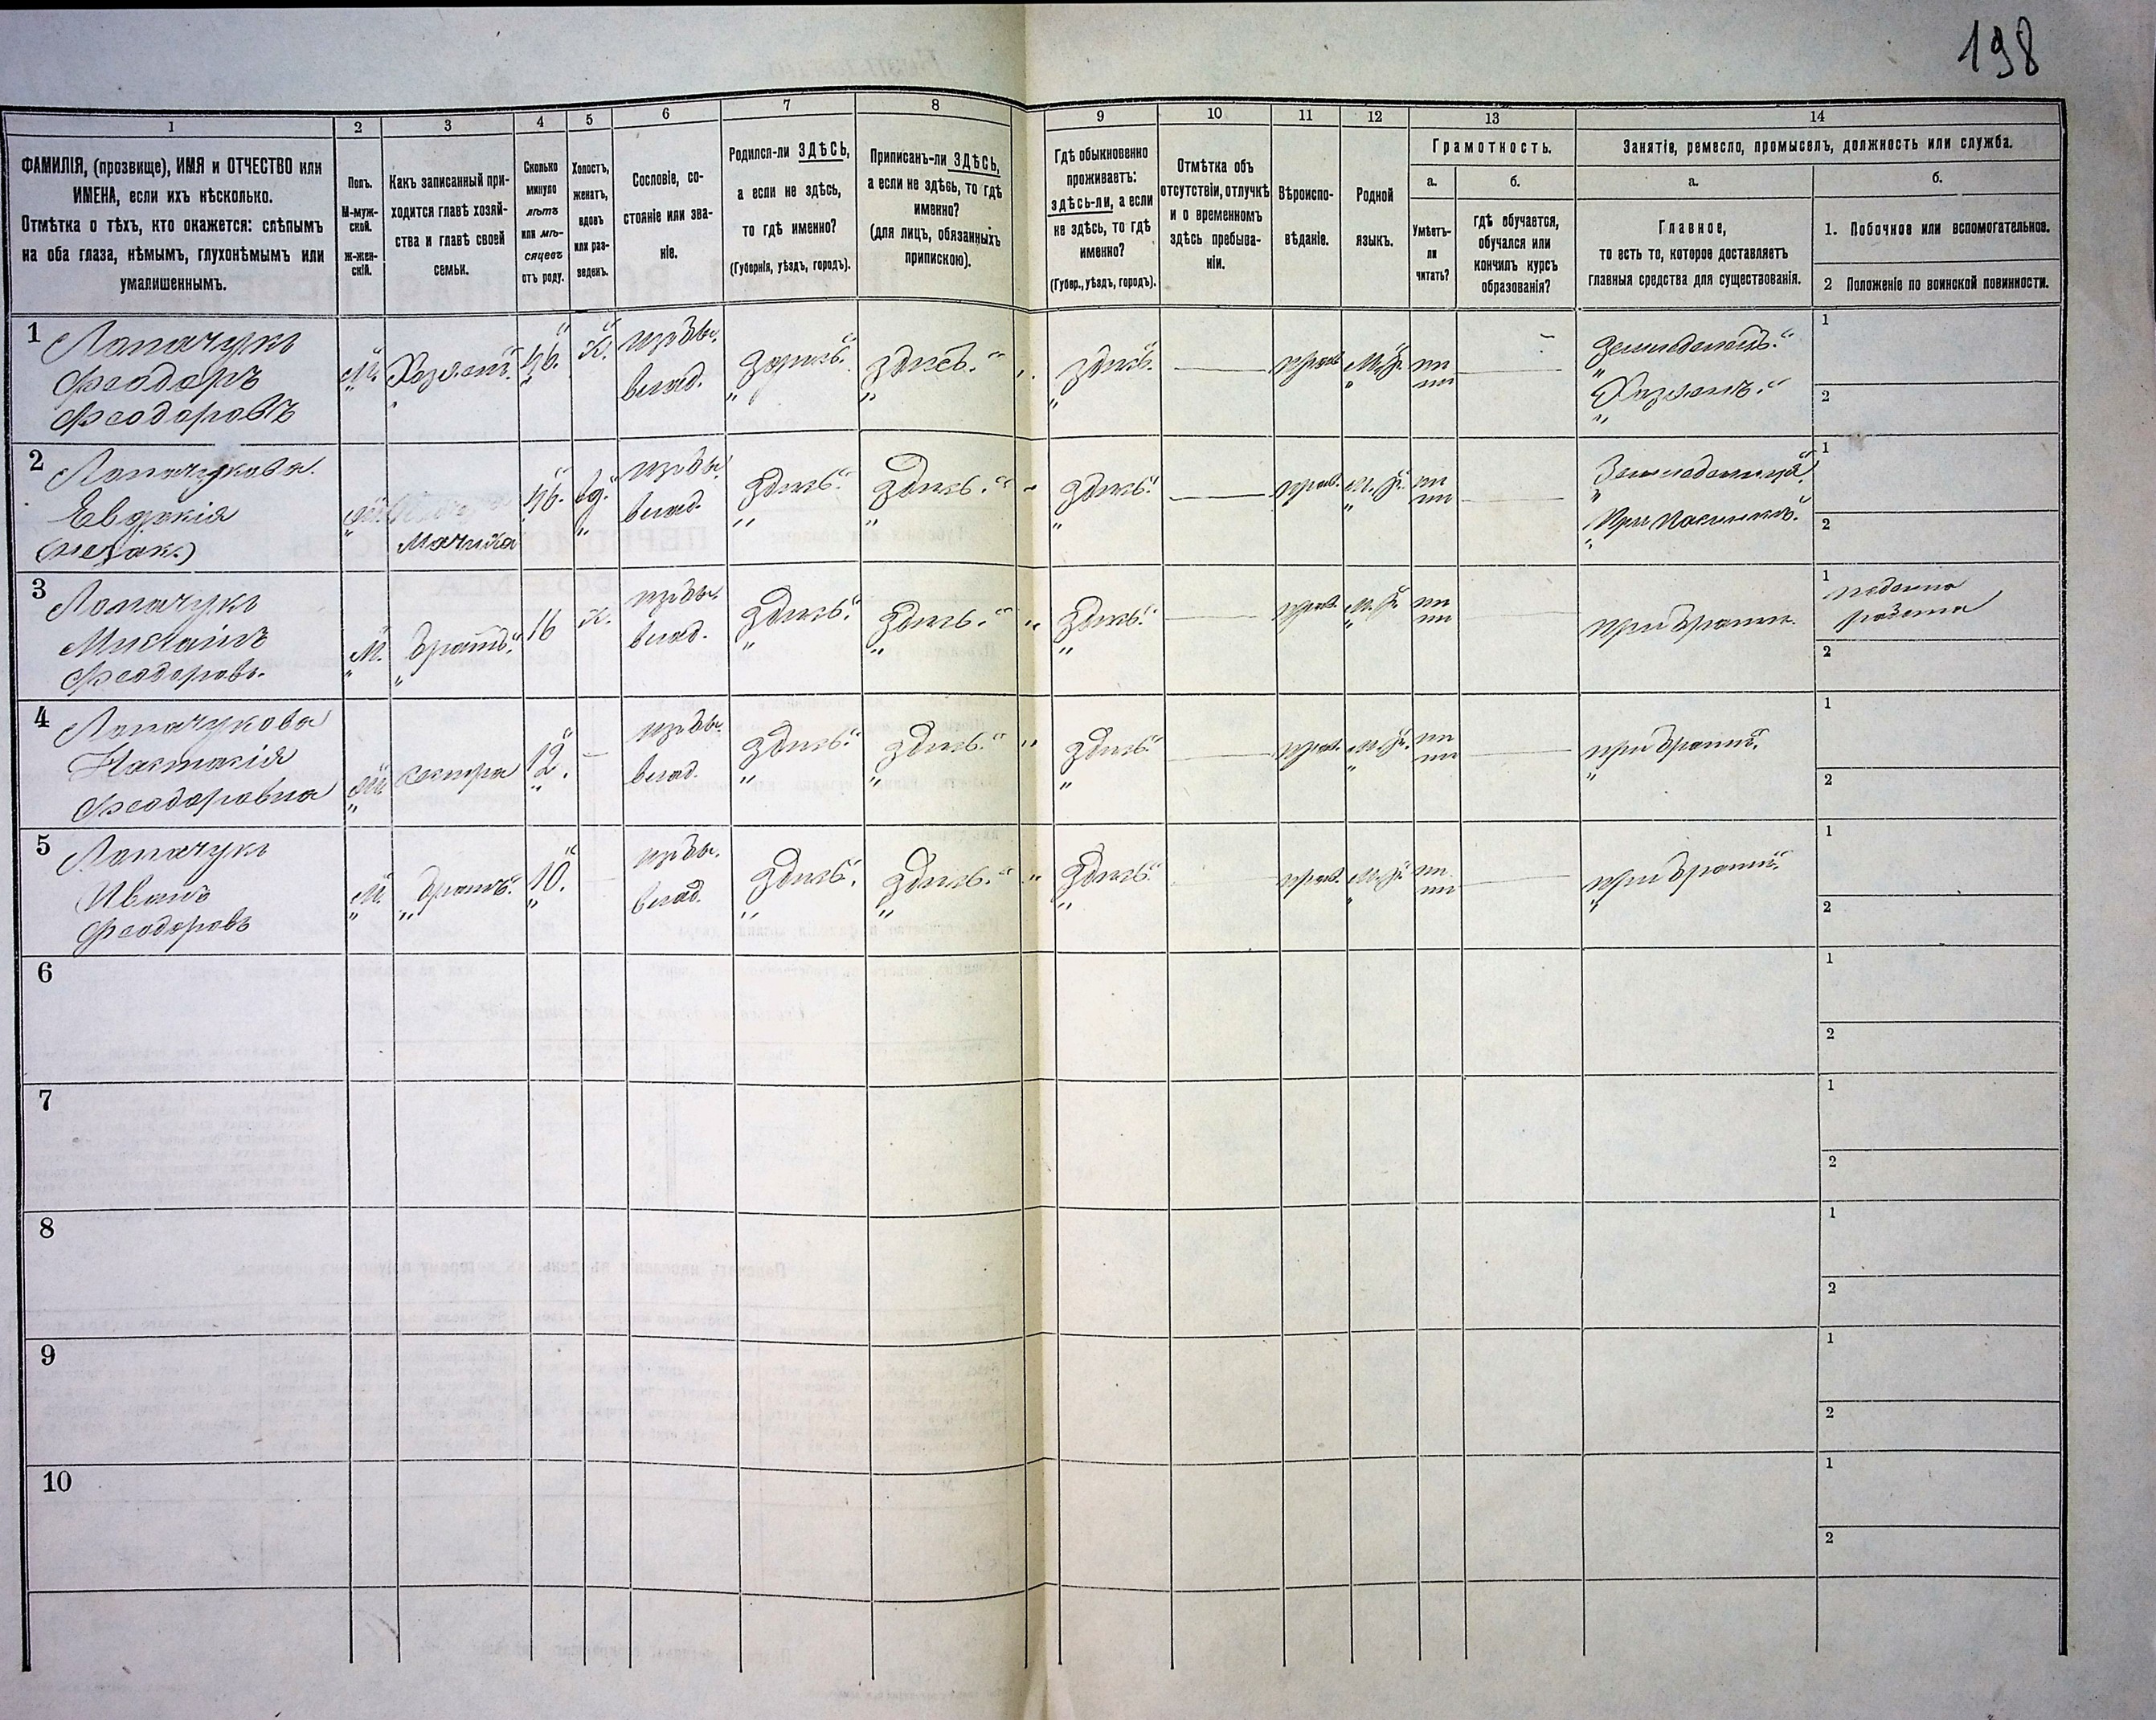 198
1
2
3
4
5
6
7
8
9
10
11
12
13
14
ФАМИЛІЯ, (прозвище), ИМЯ и ОТЧЕСТВО или
ИМЕНА, если ихъ нѣсколько.
Отмѣтка о тѣхъ, кто окажется: слѣпымъ
на оба глаза, нѣмымъ, глухонѣмымъ или
умалишеннымъ.
Полъ.
М-муж-
ской.
Ж-жен-
скій.
Какъ записанный при-
ходится главѣ хозяй-
ства и главѣ своей
семьи.
Сколько
минуло
лѣтъ
или мѣ-
сяцевъ
отъ роду.
Холостъ,
женатъ,
вдовъ
или раз-
веденъ.
Сословіе, со-
стояніе или зва-
ніе.
Родился-ли ЗДѢСЬ,
а если не здѣсь,
то гдѣ именно?
(Губернія, уѣздъ, городъ).
Приписанъ-ли ЗДѢСЬ,
а если не здѣсь, то гдѣ
именно?
(для лицъ, обязанныхъ
припискою).
Гдѣ обыкновенно
проживаетъ:
здѣсь-ли, а если
не здѣсь, то гдѣ
именно?
(Губер., уѣздъ, городъ).
Отмѣтка объ
отсутствіи, отлучкѣ
и о временномъ
здѣсь пребыва-
ніи.
Вѣроиспо-
вѣданіе.
Родной
языкъ.
Грамотность.
а.
Умѣетъ-
ли
читать?
б.
гдѣ обучается,
обучался или
кончилъ курсъ
образованія?
Занятіе, ремесло, промыселъ, должность или служба.
а.
Главное,
то есть то, которое доставляетъ
главныя средства для существованія.
б.
1. Побочное или вспомогательное.
2 Положеніе по воинской повинности.
1
Лопачукъ
Феодоръ
Феодоровъ
М.
Хозяинъ.
Х.
влад.
здѣсь.
здѣсь.
здѣсь.
прав.
нѣ
Хозяинъ.
1
2
2
Лопачукова
Евдокія
вд.
Мачиха
влад.
здѣсь.
здѣсь.
здѣсь.
прав.
нѣ
При пасынкѣ.
1
2
3
Лопачукъ
Михаилъ
Феодоровъ
М.
братъ.
16
Х.
влад.
здѣсь.
здѣсь.
здѣсь.
прав.
нѣ
при братѣ.
1
2
4
Лопачукова
Настасія
Феодоровна
сестра
12.
влад.
здѣсь.
здѣсь.
здѣсь.
прав.
нѣ
при братѣ.
1
2
5
Лопачукъ
Иванъ
Феодоровъ
М.
братъ.
10.
влад.
здѣсь.
здѣсь.
здѣсь.
прав.
нѣ
при братѣ.
1
2
6
1
2
7
1
2
8
1
2
9
1
2
10
1
2